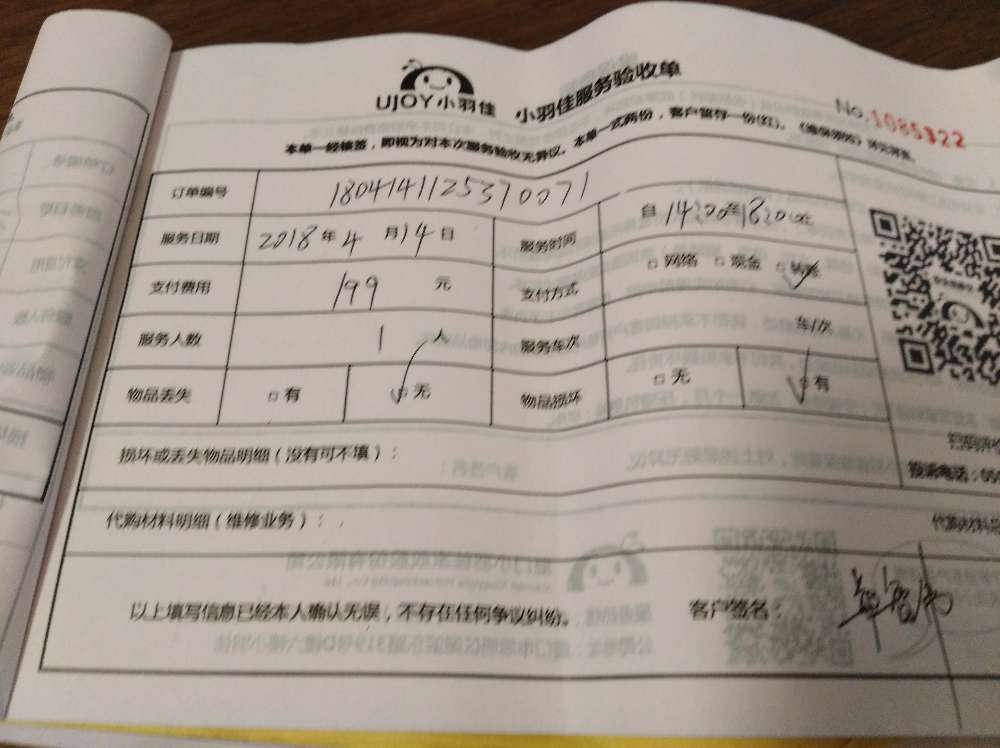 UJOY小羽佳 小羽佳服务验收单 No.1085322
本单一经横签，即视为对本次服务验收无异议。本单一式两份，客户留存一份(红)。
订单编号 1804141125370071
服务日期 2018年4月14日 服务时间 自14:20至18:20
支付费用 199 元 支付方式 □网络 □现金 □转账
服务人数 1 人 服务车次 车/次
物品丢失 □有 □无 物品损坏 □无 □有
损坏或丢失物品明细（没有可不填）：
代购材料明细（维修业务）：
以上填写信息已经本人确认无误，不存在任何争议纠纷。 客户签名：